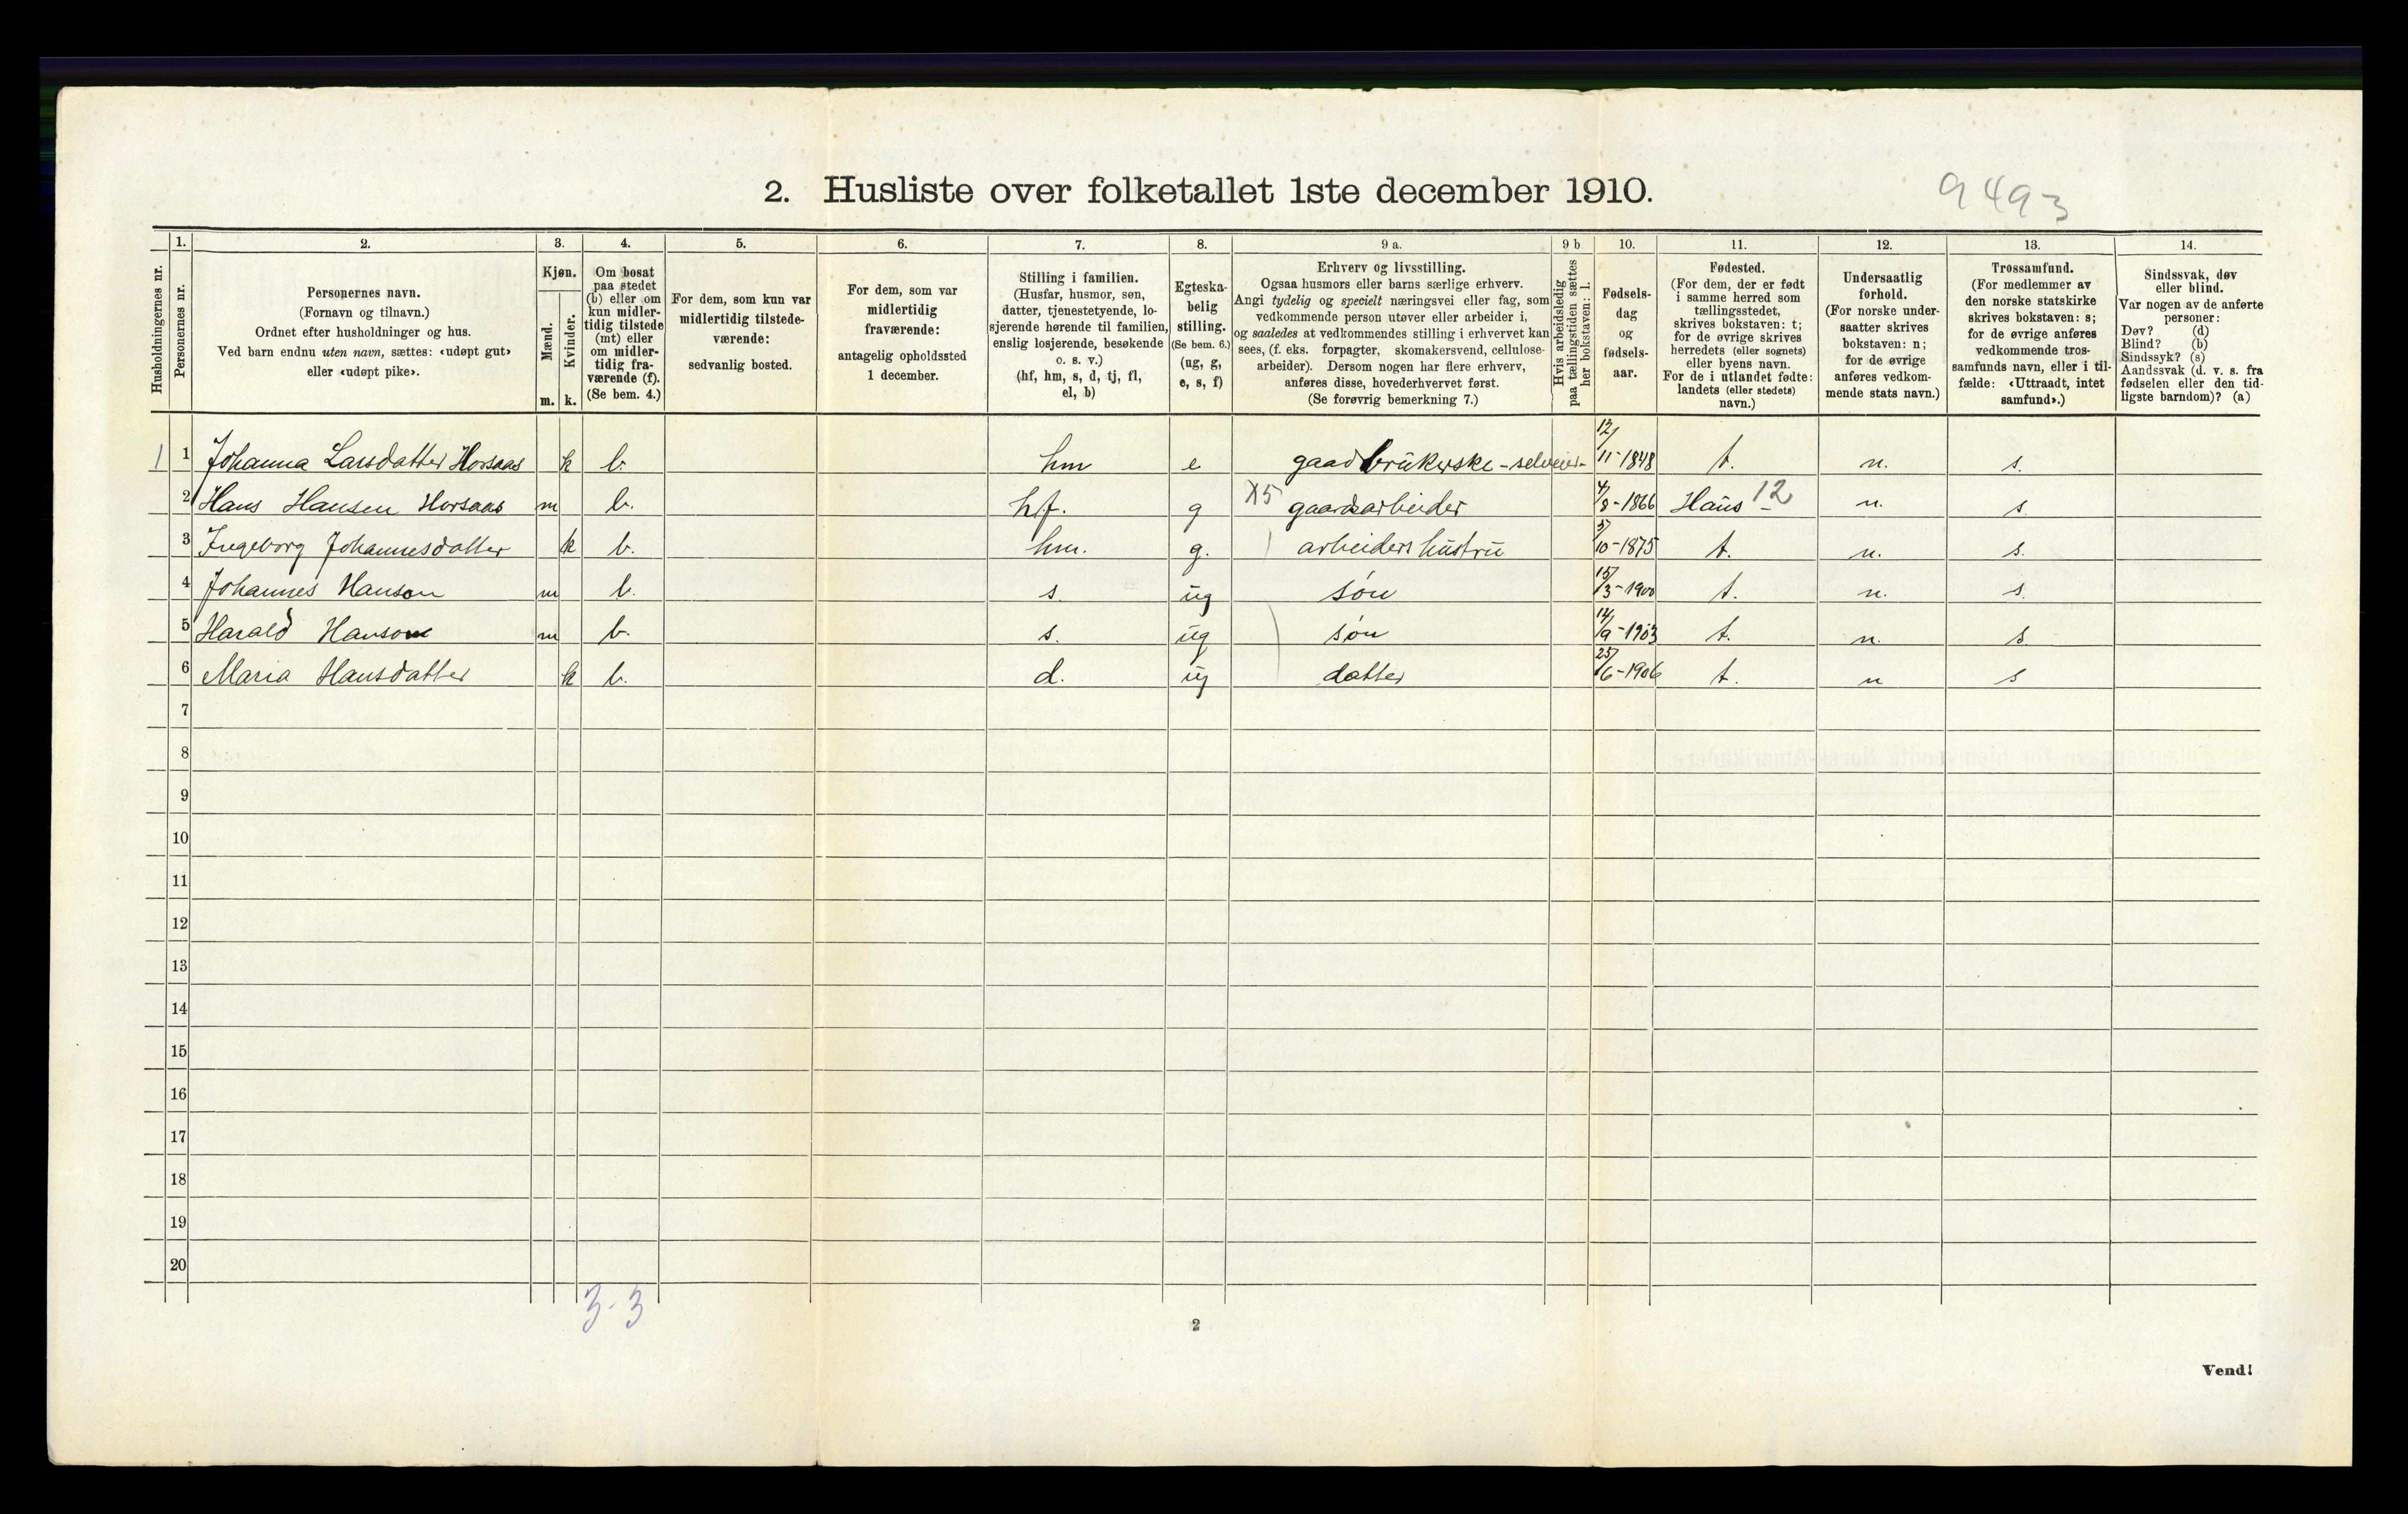 2. Husliste over folketallet 1ste december 1910.
9493
Husholdningernes nr.
1.
Personernes nr.
2.
Personernes navn.
(Fornavn og tilnavn.)
Ordnet efter husholdninger og hus.
Ved barn endnu uten navn, sættes: «udøpt gut»
eller «udøpt pike».
3.
Kjøn.
Mænd.
Kvinder.
m. k.
4.
Om bosat
paa stedet
(b) eller om
kun midler-
tidig tilstede
(mt) eller
om midler-
tidig fra-
værende (f).
(Se bem. 4.)
5.
For dem, som kun var
midlertidig tilstede-
værende:
sedvanlig bosted.
6.
For dem, som var
midlertidig
fraværende:
antagelig opholdssted
1 december.
7.
Stilling i familien.
(Husfar, husmor, søn,
datter, tjenestetyende, lo-
sjerende hørende til familien,
enslig losjerende, besøkende
o. s. v.)
(hf, hm, s, d, tj, fl,
el, b)
8.
Egteska-
belig
stilling.
(Se bem. 6.)
(ug, g,
e, s, f)
9 a.
Erhverv og livsstilling.
Ogsaa husmors eller barns særlige erhverv.
Angi tydelig og specielt næringsvei eller fag, som
vedkommende person utøver eller arbeider i,
og saaledes at vedkommendes stilling i erhvervet kan
sees, (f. eks. forpagter, skomakersvend, cellulose-
arbeider). Dersom nogen har flere erhverv,
anføres disse, hovederhvervet først.
(Se forøvrig bemerkning 7.)
9 b
Hvis arbeidsledig
paa tællingstiden sættes
her bokstaven: l.
10.
Fødsels-
dag
og
fødsels-
aar.
11.
Fødested.
(For dem, der er født
i samme herred som
tællingsstedet,
skrives bokstaven: t;
for de øvrige skrives
herredets (eller sognets)
eller byens navn.
For de i utlandet fødte:
landets (eller stedets)
navn.)
12.
Undersaatlig
forhold.
(For norske under-
saatter skrives
bokstaven: n;
for de øvrige
anføres vedkom-
mende stats navn.)
13.
Trossamfund.
(For medlemmer av
den norske statskirke
skrives bokstaven: s;
for de øvrige anføres
vedkommende tros-
samfunds navn, eller i til-
fælde: «Uttraadt, intet
samfund».)
14.
Sindssvak, døv
eller blind.
Var nogen av de anførte
personer:
Døv? (d)
Blind? (b)
Sindssyk? (s)
Aandssvak (d. v. s. fra
fødselen eller den tid-
ligste barndom)? (a)
1 1 Johanna Larsdatter Horsaas k b. hm e gaardbrukerske - selveier - 12/11-1848 t. n. s.
2 Hans Hansen Horsaas m b. hf. g X5 gaardsarbeider 4/8-1866 Haus 12 n. s
3 Ingeborg Johannesdatter k b. hm. g. arbeiders hustru 5/10-1875 t. n. s.
4 Johannes Hanson m b. s. ug søn 15/3-1900 t. n. s.
5 Harald Hanson m b. s. ug søn 14/9-1903 t. n. s.
6 Maria Hansdatter k b. d. ug datter 25/6-1906 t. n s
7
8
9
10
11
12
13
14
15
16
17
18
19
20
3-3
2
Vend!